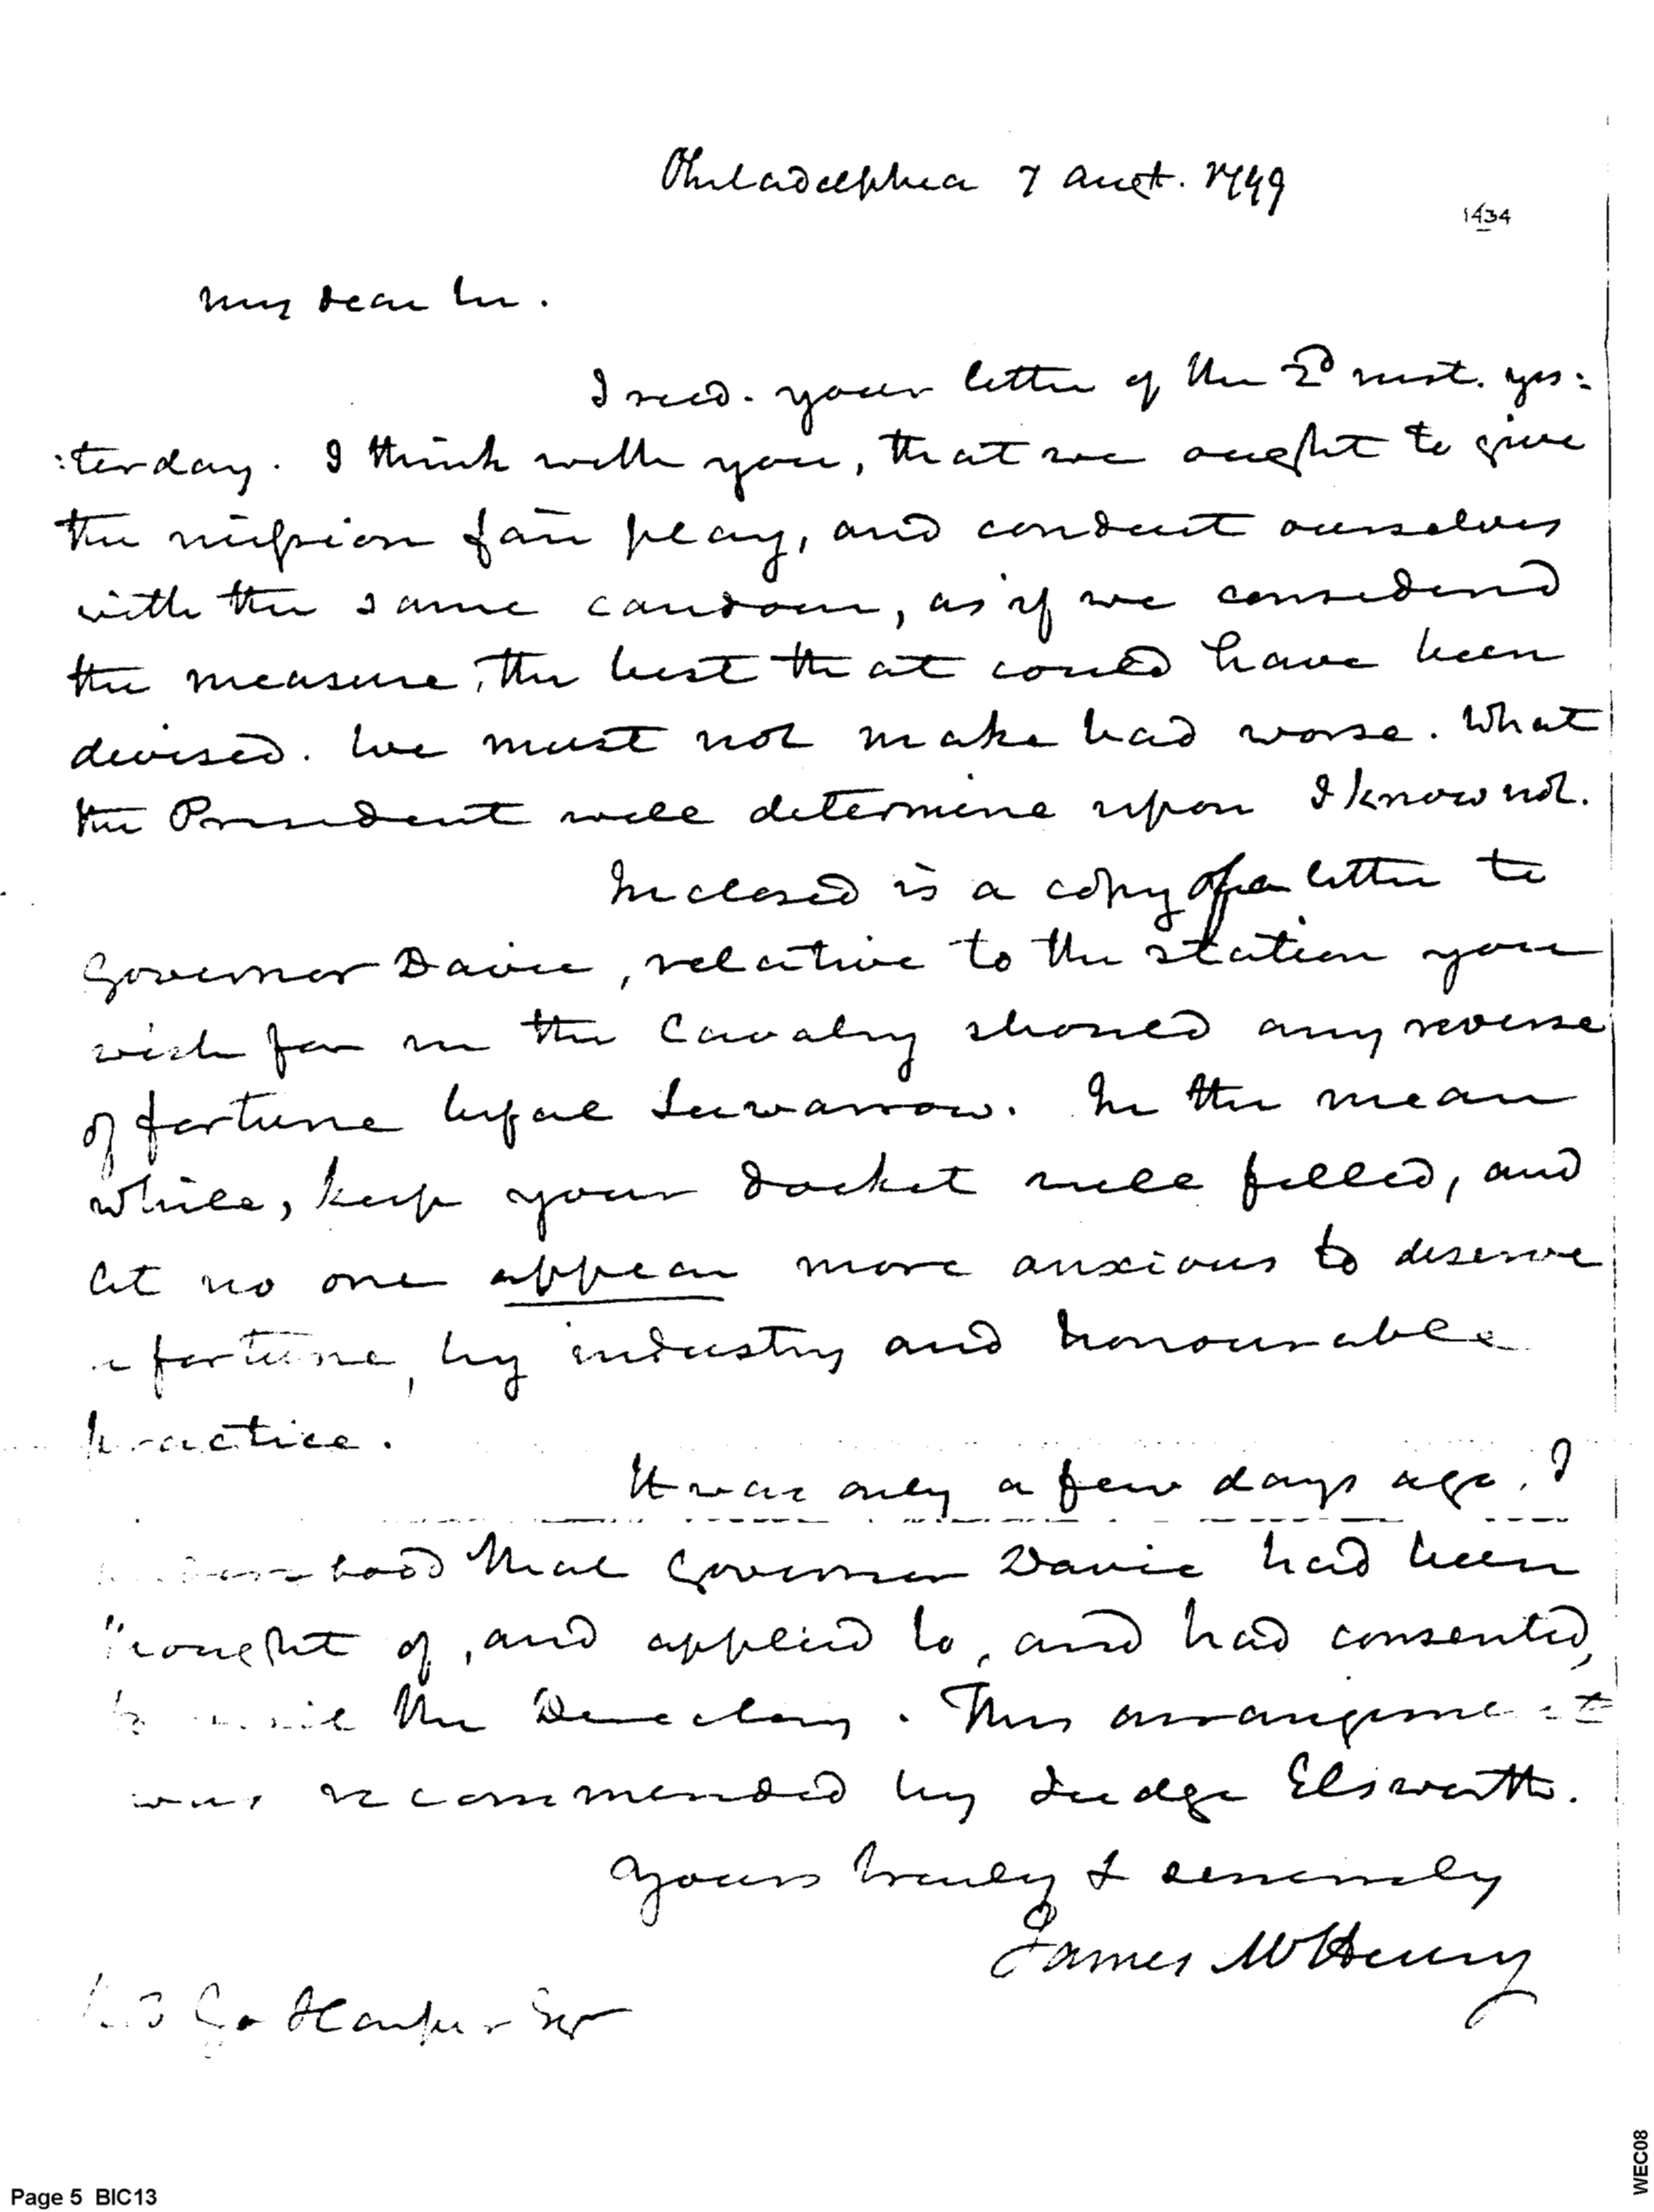 Philadelphia 7 Augt. 1799
1434
My dear Sir.
I recd. your letter of the 2d inst. yes:
:terday. I think with you, that we ought to give
the mission fair play, and conduct ourselves
with the same candour, as if we considered
the measure, the best that could have been
devised. We must not make bad worse. What
the President will determine upon I know not.
Inclosed is a copy of a letter to
Governor Davie, relative to the station you
wish for in the Cavalry should any reverse
of fortune befal Suwarrow. In the mean
while, keep your docket well filled, and
let no one appear more anxious to deserve
a fortune, by industry and honourable
practice.
It was only a few days ago, I
understood that Governor Davie had been
thought of, and applied to, and had consented,
to the Directory. This arrangement
was recommended by Judge Elsworth.
Yours truly & sincerely
James McHenry
Harper Esqr
Page 5 BIC13
WEC08